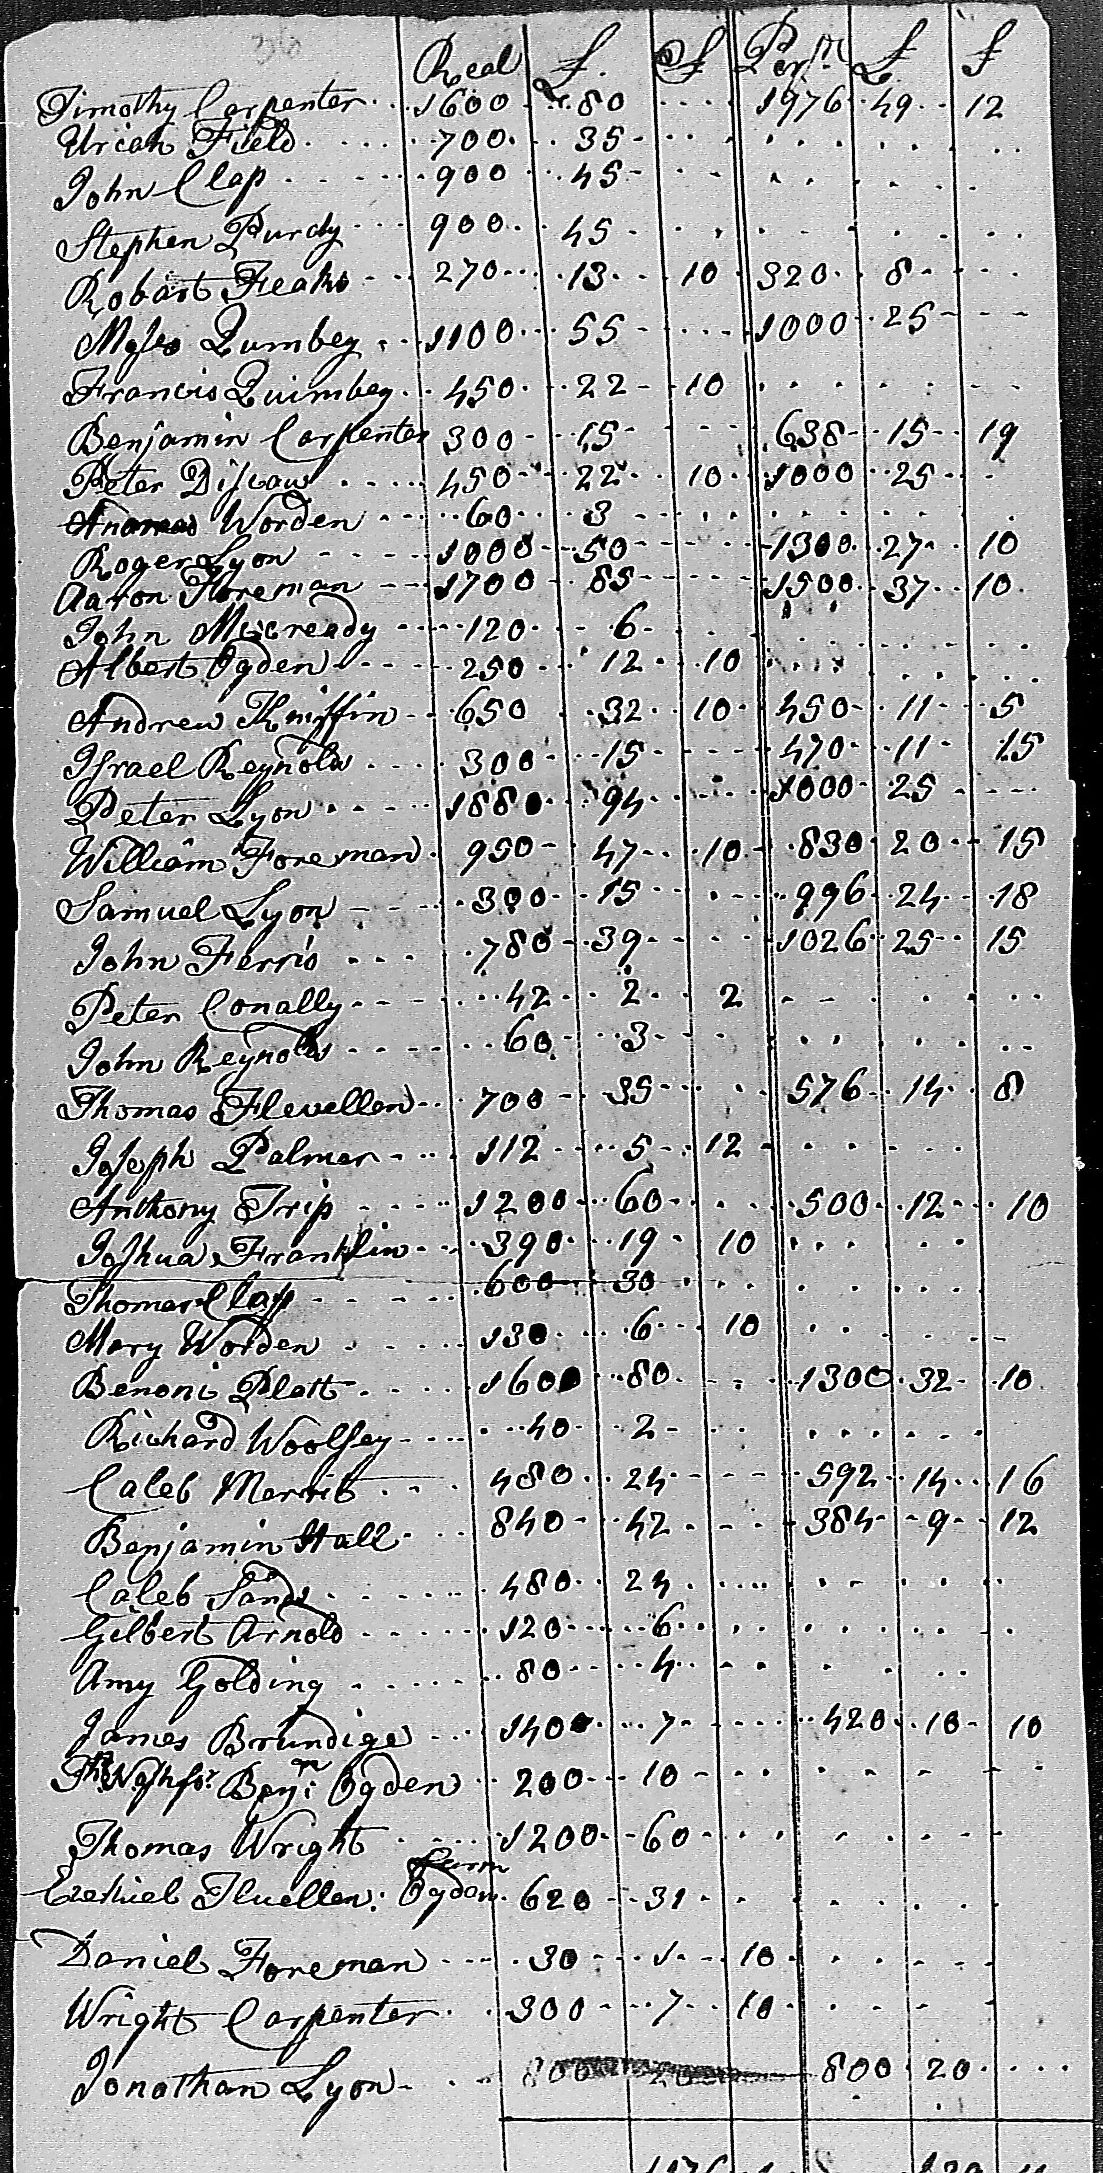 Real £. S Per.ll £ S
Timothy Carpenter 1600 80 1976 49 12
Uriah Field 700 35
John Clap 900 45
Stephen Purdy 900 45
Robart Feaks 270 13 10 320 8
Myles Qumbey 1100 55 1000 25
Francis Quimbey 450 22 10
Benjamin Carpenter 300 15 638 15 19
Peter Discaw 450 22 10 1000 25
Worden 60 3
Roger Lyon 1000 50 1300 27 10
Aaron Foreman 1700 85 1500 37 10
John Mccready 120 6
Albert Ogden 250 12 10
Andrew Kniffin 650 32 10 450 11 5
Israel Reynolds 300 15 470 11 15
Peter Lyon 1880 94 1000 25
William Foreman 950 47 10 830 20 15
Samuel Lyon 300 15 996 24 18
John Ferris 780 39 1026 25 15
Peter Conally 42 2 2
John Reynolds 60 3
Thomas Flevellen 700 35 576 14 8
Joseph Palmer 112 5 12
Anthony Trip 1200 60 500 12 10
Joshua Franklin 390 19 10
Thomas Clapp 600 30
Mary Worden 130 6 10
Benoni Platt 1600 80 1300 32 10
Richard Woolsey 40 2
Caleb Merrit 480 24 592 14 16
Benjamin Hall 840 42 384 9 12
Caleb Sands 480 24
Gilbert Arnold 120 6
Amy Golding 80 4
James Brundige 1400 7 420 10 10
Benjn: Ogden 200 10
Thomas Wright 1200 60
farm
Ezekiel Fluellen: Ogden 620 31
Daniel Foreman 30 1 10
Wright Carpenter 300 7 10
Jonathan Lyon 800 20 800 20